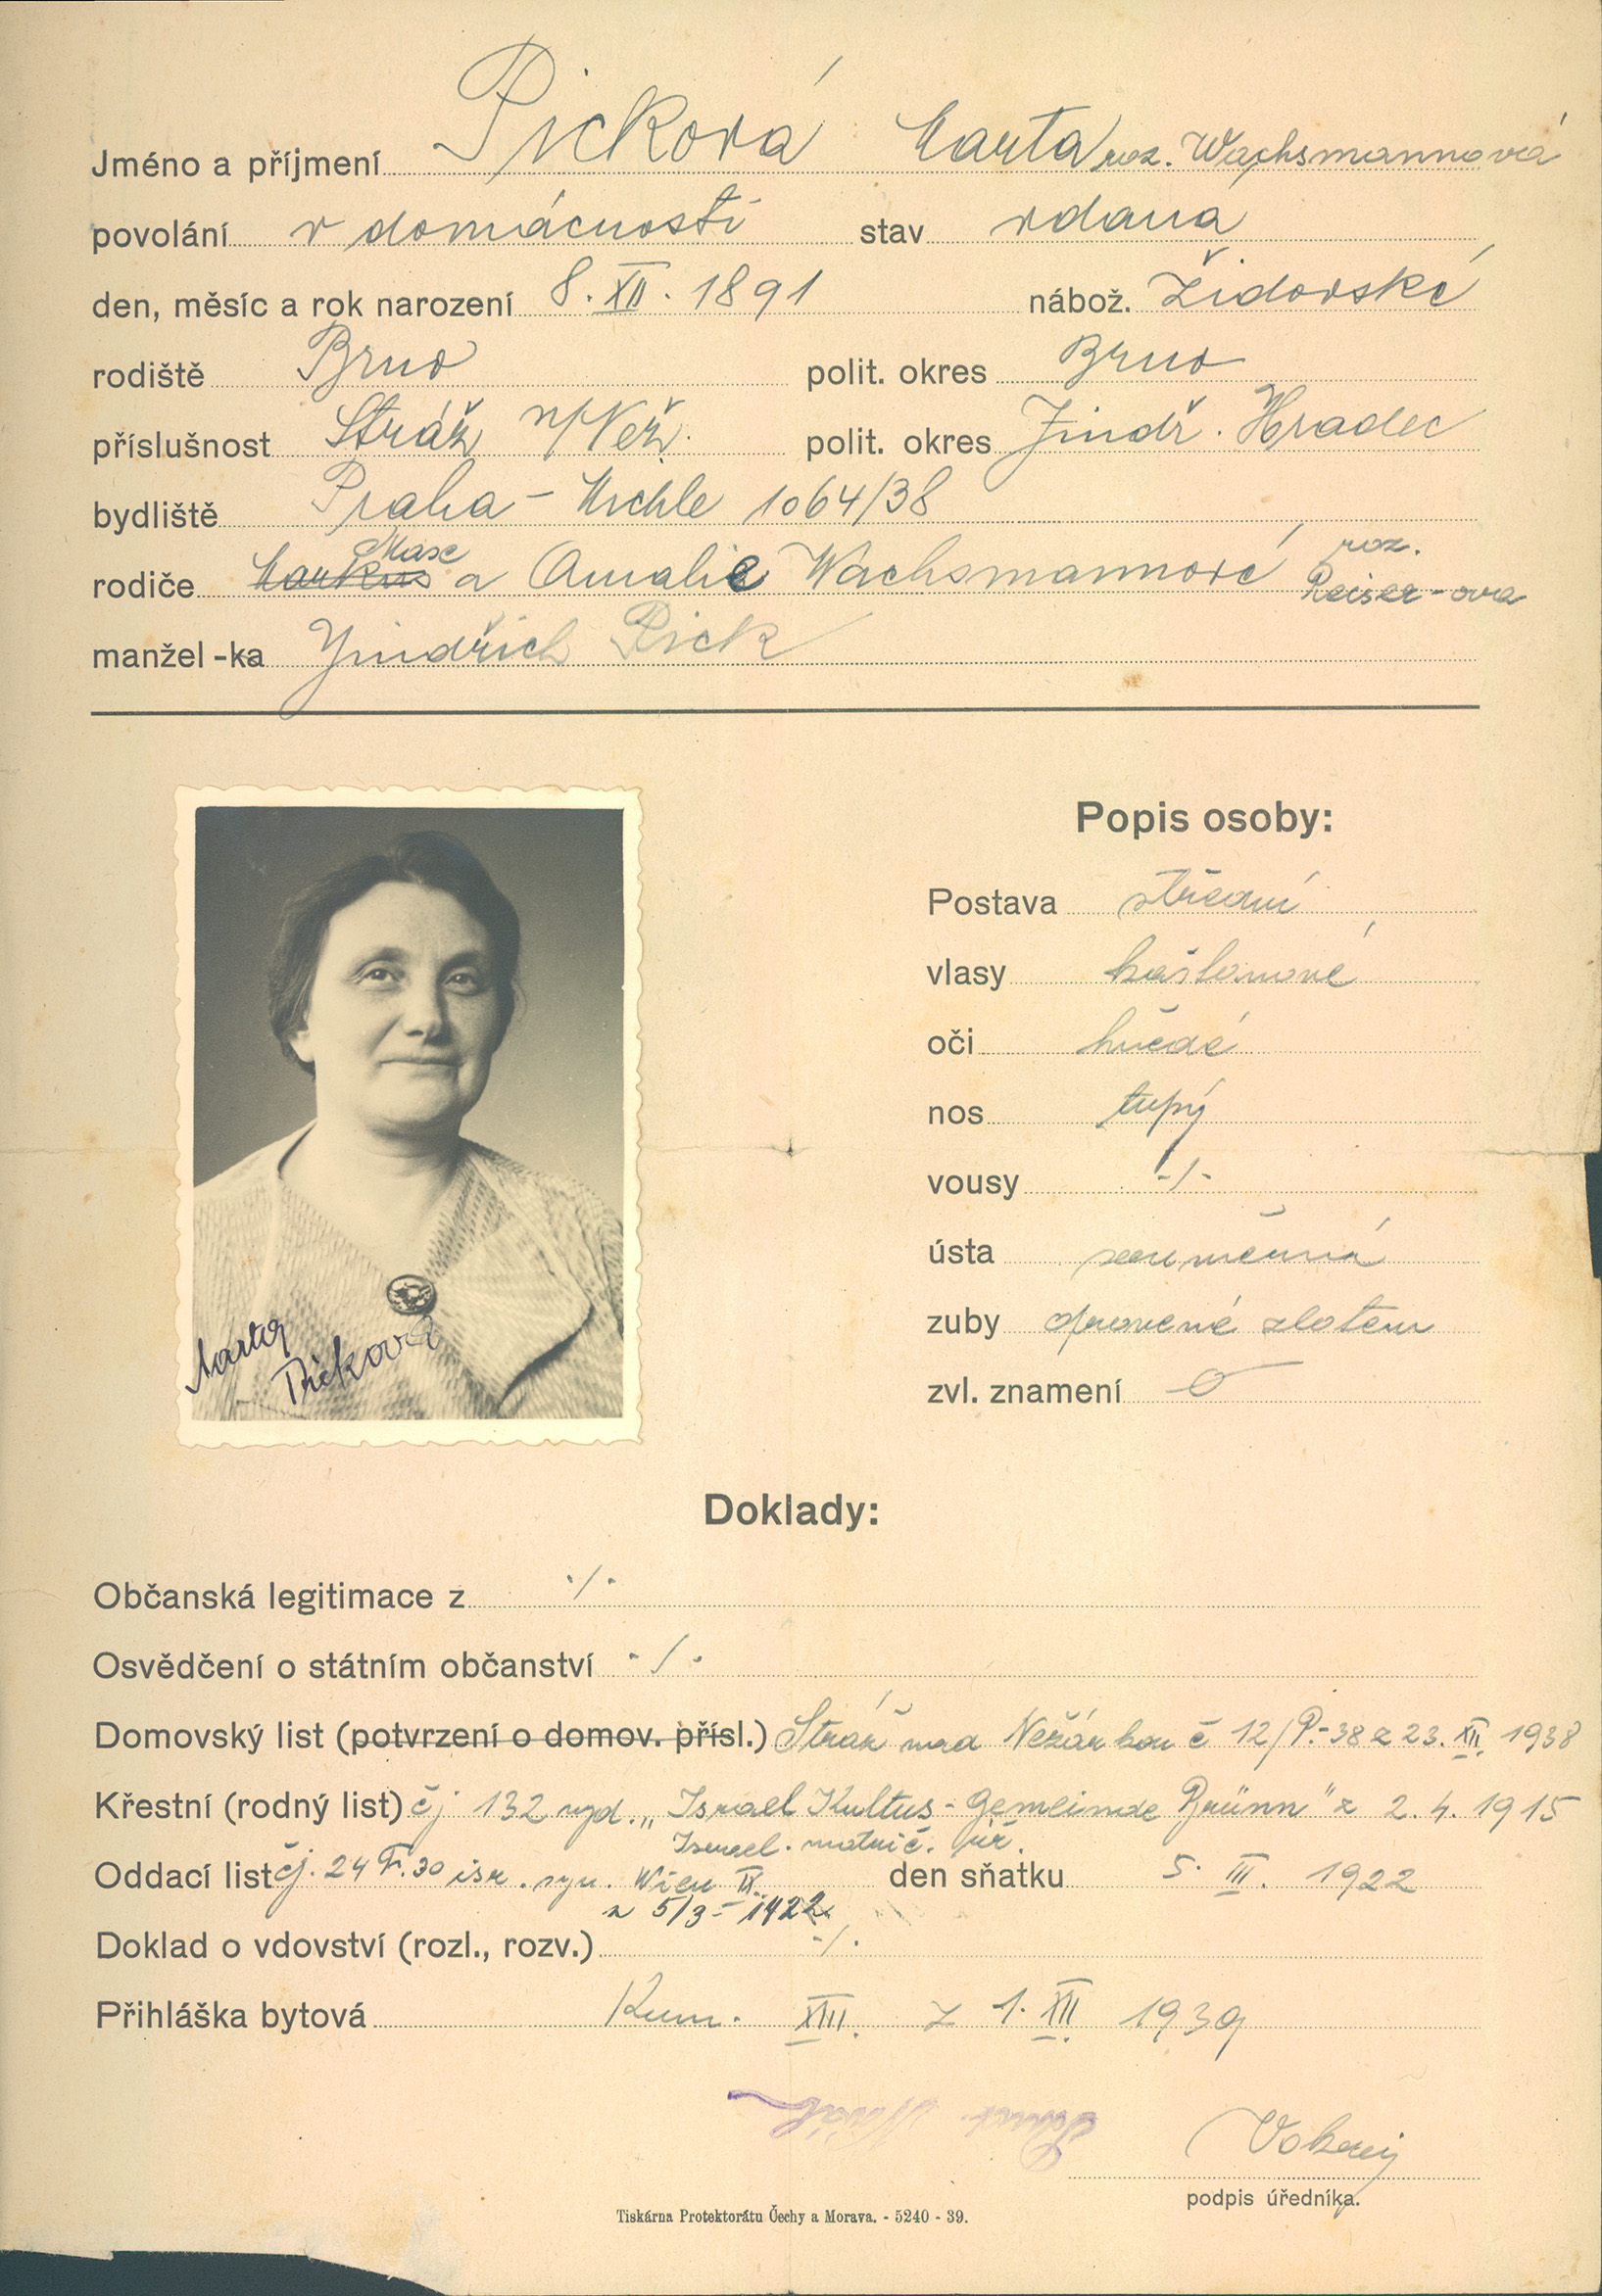 Jméno a příjmení Picková Marta roz. Wachsmannová
povolání v domácnosti stav vdaná
den, měsíc a rok narození 8. XII. 1891 nábož. Židovské
rodiště Brno polit. okres Brno
příslušnost Stráž n/Než. polit. okres Jindř. Hradec
bydliště Praha - Michle 1064/38
rodiče Markus Maxe a Amalie Wachsmannové roz. Reiser-ova
manžel -ka Jindřich Pick
Popis osoby:
Postava střední
vlasy kaštanové
oči hnědé
nos tupý
vousy -/-
ústa souměrná
zuby opravené zlatem
zvl. znamení
Marta
Picková
Doklady:
Občanská legitimace z ./.
Osvědčení o státním občanství ./.
Domovský list (potvrzení o domov. přísl.) Stráž nad Nežárkou č 12/P.-38 z 23. XII. 1938
Křestní (rodný list) čj 132 vyd. „Israel Kultus-Gemeinde Brünn" z 2. 4. 1915
Israel. matrič. úř.
Oddací list čj. 24 F. 30 isr. Wien IX. den sňatku 5. III. 1922
z 5/3 - 1922
Doklad o vdovství (rozl., rozv.) -/.
Přihláška bytová Kom. XIII. z 1. XII 1939
podpis úředníka.
Tiskárna Protektorátu Čechy a Morava. - 5240 - 39.